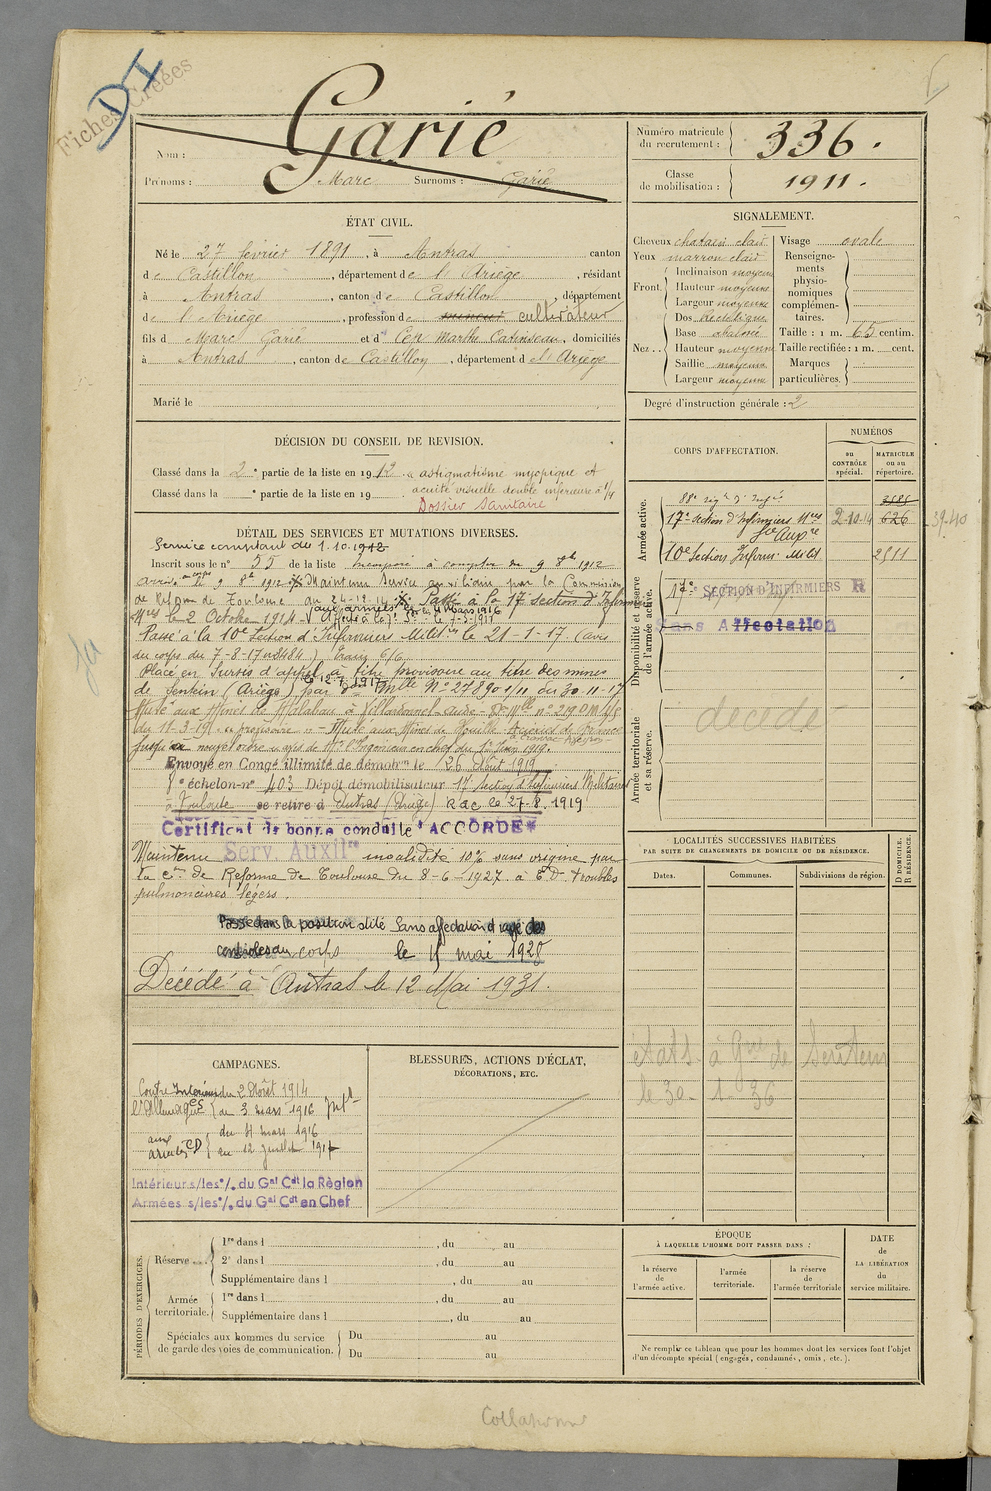 Fiches Créées
DI
Garié
Nom :
Prénoms : Marc Surnoms : Garié
Numéro matricule du recrutement : 336.
Classe de mobilisation : 1911.
ÉTAT CIVIL.
Né le 27 février 1891, à Antras canton
de Castillon, département de l'Ariège, résidant
à Antras, canton de Castillon, département
de l'Ariège, profession de mineur cultivateur
fils de Marc Garié et de Cen Marthe, domiciliés
à Antras, canton de Castillon, département de l'Ariège
Marié le
SIGNALEMENT.
Cheveux chatain clair
Yeux marron clair
Front. Inclinaison moyenne
Hauteur moyenne
Largeur moyenne
Nez.. Dos
Base abaissée
Hauteur moyenne
Saillie moyenne
Largeur moyenne
Visage ovale
Renseignements physionomiques complémentaires.
Taille : 1 m. 65 centim.
Taille rectifiée : 1 m. cent.
Marques particulières.
Degré d'instruction générale : 2
DÉCISION DU CONSEIL DE REVISION.
Classé dans la 2e partie de la liste en 1912. astigmatisme myopique et
Classé dans la e partie de la liste en 19 acuité visuelle double inférieure à 1/4
Dossier Sanitaire
DÉTAIL DES SERVICES ET MUTATIONS DIVERSES.
Service comptant du 1.10.1912
Inscrit sous le n° 55 de la liste Incorporé à compter du 9 8bre 1912
arrivé au corps le 9 8bre 1912. Maintenu Service auxiliaire par la Commission
de Réforme de Toulouse du 24-12-14. Passé à la 17e section d'Infirmiers
Mres le 2 Octobre 1914
aux armées le 4 Mars 1916
Passé à la 10e Section d'Infirmiers Militres le 21-1-17. (avis
du corps du 7-8-17 n° 8484)
Placé en Sursis d'appel à titre provisoire au titre des mines
le 12-7-1917
de Sentein (Ariège) par Don Mlle N° 27890 1/11 du 30-11-17
Muté aux Mines de Malabau à Villardonnel Aude
du 11-3-19 Muté aux Mines de Houille
jusqu'à nouvel ordre
Envoyé en Congé illimité de démobon le 26 Août 1919
8e échelon-n° 403 Dépôt démobilisateur 17e Section d'Infirmiers Militaires
à Toulouse se retire à Antras (Ariège) Rac le 27-8-1919
Certificat de bonne conduite "ACCORDÉ"
Maintenu Serv. Auxilre invalidité 10% sans origine par
la Con de Réforme de Toulouse du 8-6-1927. à E.D. troubles
pulmonaires légers.
Passé dans la position dite Sans affectation et rayé des
contrôles du corps le 15 mai 1928
Décédé à Antras le 12 Mai 1931.
CORPS D'AFFECTATION.
NUMÉROS
au CONTRÔLE spécial.
MATRICULE ou au répertoire.
Armée active.
88e régt d'Infie 3585
17e section d'Infirmiers Mres 2-10-14 626
Sce Auxre
10e Section Infirm. Milit 2511
39-40
Disponibilité et réserve de l'armée active.
17e SECTION D'INFIRMIERS R
Sans Affectation
Armée territoriale et sa réserve.
décédé
LOCALITÉS SUCCESSIVES HABITÉES
PAR SUITE DE CHANGEMENTS DE DOMICILE OU DE RÉSIDENCE.
Dates. Communes. Subdivisions de région. D DOMICILE. R RÉSIDENCE.
le 30 - 1 36
CAMPAGNES.
Contre l'Allemagne
Intérieur du 2 Août 1914
au 3 mars 1916
aux armées CD
du 4 mars 1916
au 12 juillet 1917
Intérieurs/les%.du Gal Cdt la Région
Armées s/les%.du Gal Cdt en Chef
BLESSURES, ACTIONS D'ÉCLAT,
DÉCORATIONS, ETC.
PÉRIODES D'EXERCICES.
Réserve ...
1re dans l , du au
2e dans l , du au
Supplémentaire dans l , du au
Armée territoriale.
1re dans l , du au
Supplémentaire dans l , du au
Spéciales aux hommes du service
de garde des voies de communication.
Du au
Du au
ÉPOQUE
À LAQUELLE L'HOMME DOIT PASSER DANS :
la réserve de l'armée active.
l'armée territoriale.
la réserve de l'armée territoriale
DATE de LA LIBÉRATION du service militaire.
Ne remplir ce tableau que pour les hommes dont les services font l'objet
d'un décompte spécial (engagés, condamnés, omis, etc.).